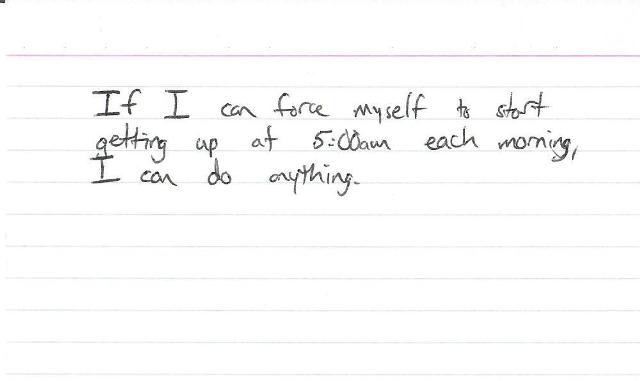 If I can force myself to start
getting up at 5:00am each morning,
I can do anything.